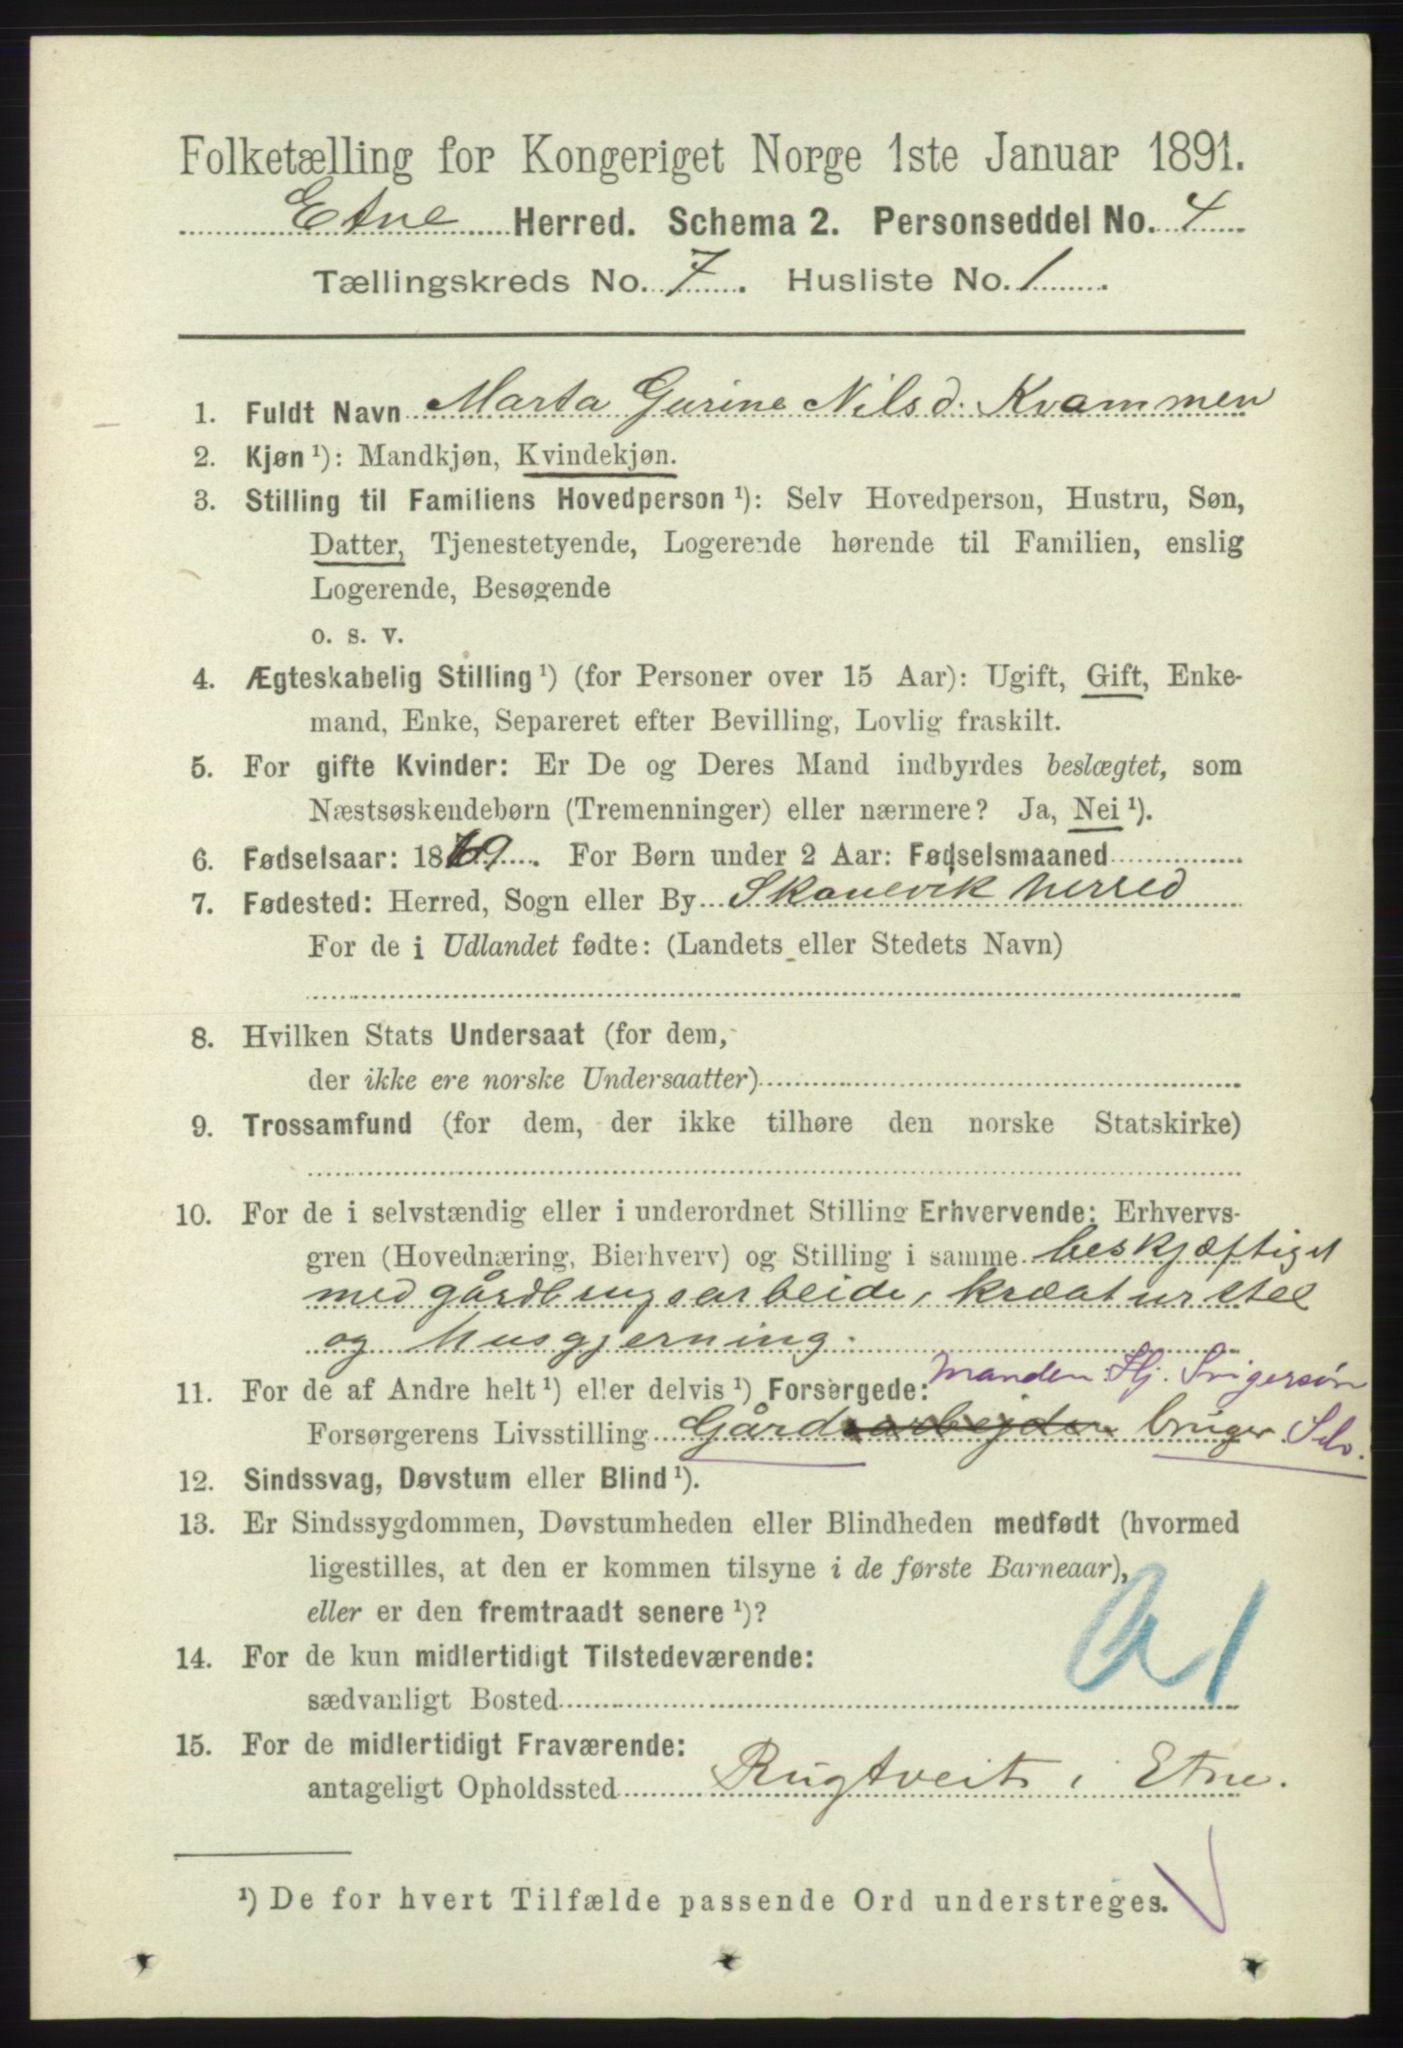 Folketælling for Kongeriget Norge 1ste Januar 1891.
Etne Herred. Schema 2. Personseddel No. 4
Tællingskreds No. 7. Husliste No. 1.
1. Fuldt Navn Marta Gurine Nilsd. Kvammen
2. Kjøn ¹): Mandkjøn, Kvindekjøn.
3. Stilling til Familiens Hovedperson ¹): Selv Hovedperson, Hustru, Søn,
Datter, Tjenestetyende, Logerende hørende til Familien, enslig
Logerende, Besøgende
o. s. v.
4. Ægteskabelig Stilling ¹) (for Personer over 15 Aar): Ugift, Gift, Enke-
mand, Enke, Separeret efter Bevilling, Lovlig fraskilt.
5. For gifte Kvinder: Er De og Deres Mand indbyrdes beslægtet, som
Næstsøskendebørn (Tremenninger) eller nærmere? Ja, Nei ¹).
6. Fødselsaar: 1869. For Børn under 2 Aar: Fødselsmaaned
7. Fødested: Herred, Sogn eller By Skonevik herred
For de i Udlandet fødte: (Landets eller Stedets Navn)
8. Hvilken Stats Undersaat (for dem,
der ikke ere norske Undersaatter)
9. Trossamfund (for dem, der ikke tilhøre den norske Statskirke)
10. For de i selvstændig eller i underordnet Stilling Erhvervende: Erhvervs-
gren (Hovednæring, Bierhverv) og Stilling i samme beskjæftiget
med gårdbrugsarbeide, kreaturstel
og husgjerning.
11. For de af Andre helt ¹) eller delvis ¹) Forsørgede: Manden
Forsørgerens Livsstilling Gårdsarbejder bruger Selv.
12. Sindssvag, Døvstum eller Blind ¹).
13. Er Sindssygdommen, Døvstumheden eller Blindheden medfødt (hvormed
ligestilles, at den er kommen tilsyne i de første Barneaar),
eller er den fremtraadt senere ¹)?
14. For de kun midlertidigt Tilstedeværende:
sædvanligt Bosted
15. For de midlertidigt Fraværende:
antageligt Opholdssted Rugtveit i Etne.
¹) De for hvert Tilfælde passende Ord understreges.